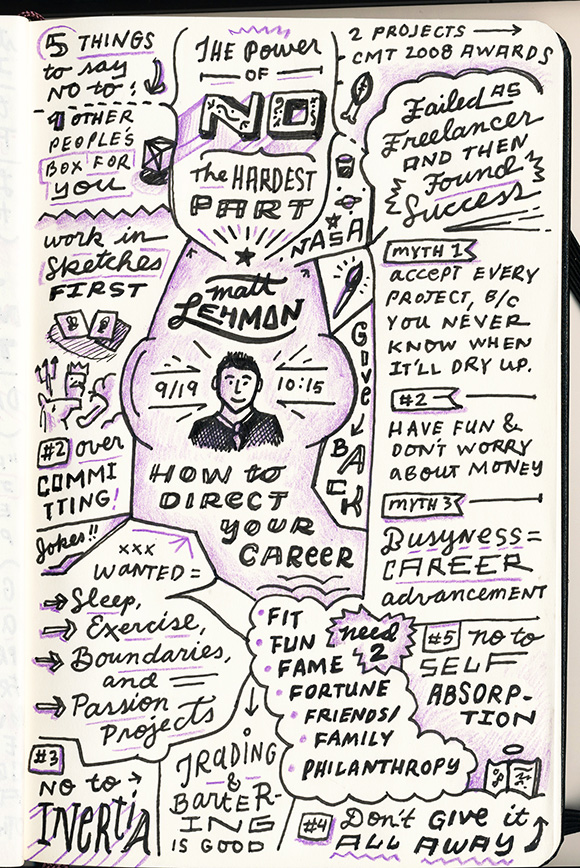 5 THINGS
to say
NO to:
#1 OTHER
PEOPLE'S
BOX FOR
YOU
work in
Sketches
FIRST
#2 over
COMMI
TTING!
Jokes!!
THE Power
OF
NO
The HARDEST
PART
NASA
matt
LEHMAN
9/19 10:15
HOW to
DIRECT
YOUR
CAREER
Give
BACK
2 PROJECTS
CMT 2008 AWARDS
Failed AS
Freelancer
AND THEN
Found
Success
MYTH 1
ACCEPT EVERY
PROJECT, B/C
YOU NEVER
KNOW WHEN
IT'LL DRY UP.
#2
HAVE FUN &
DON'T WORRY
ABOUT MONEY
MYTH 3
Busyness=
CAREER
advancement
xxx
WANTED=
Sleep,
Exercise,
Boundaries,
and
Passion
Projects
FIT
FUN
FAME
FORTUNE
FRIENDS/
FAMILY
PHILANTHROPY
need
2
#5 no to
SELF
ABSORP-
TION
#3
NO to
INERTIA
TRADING
&
BartER-
ING
IS GOOD
#4 Don't GIVE it
ALL AWAY